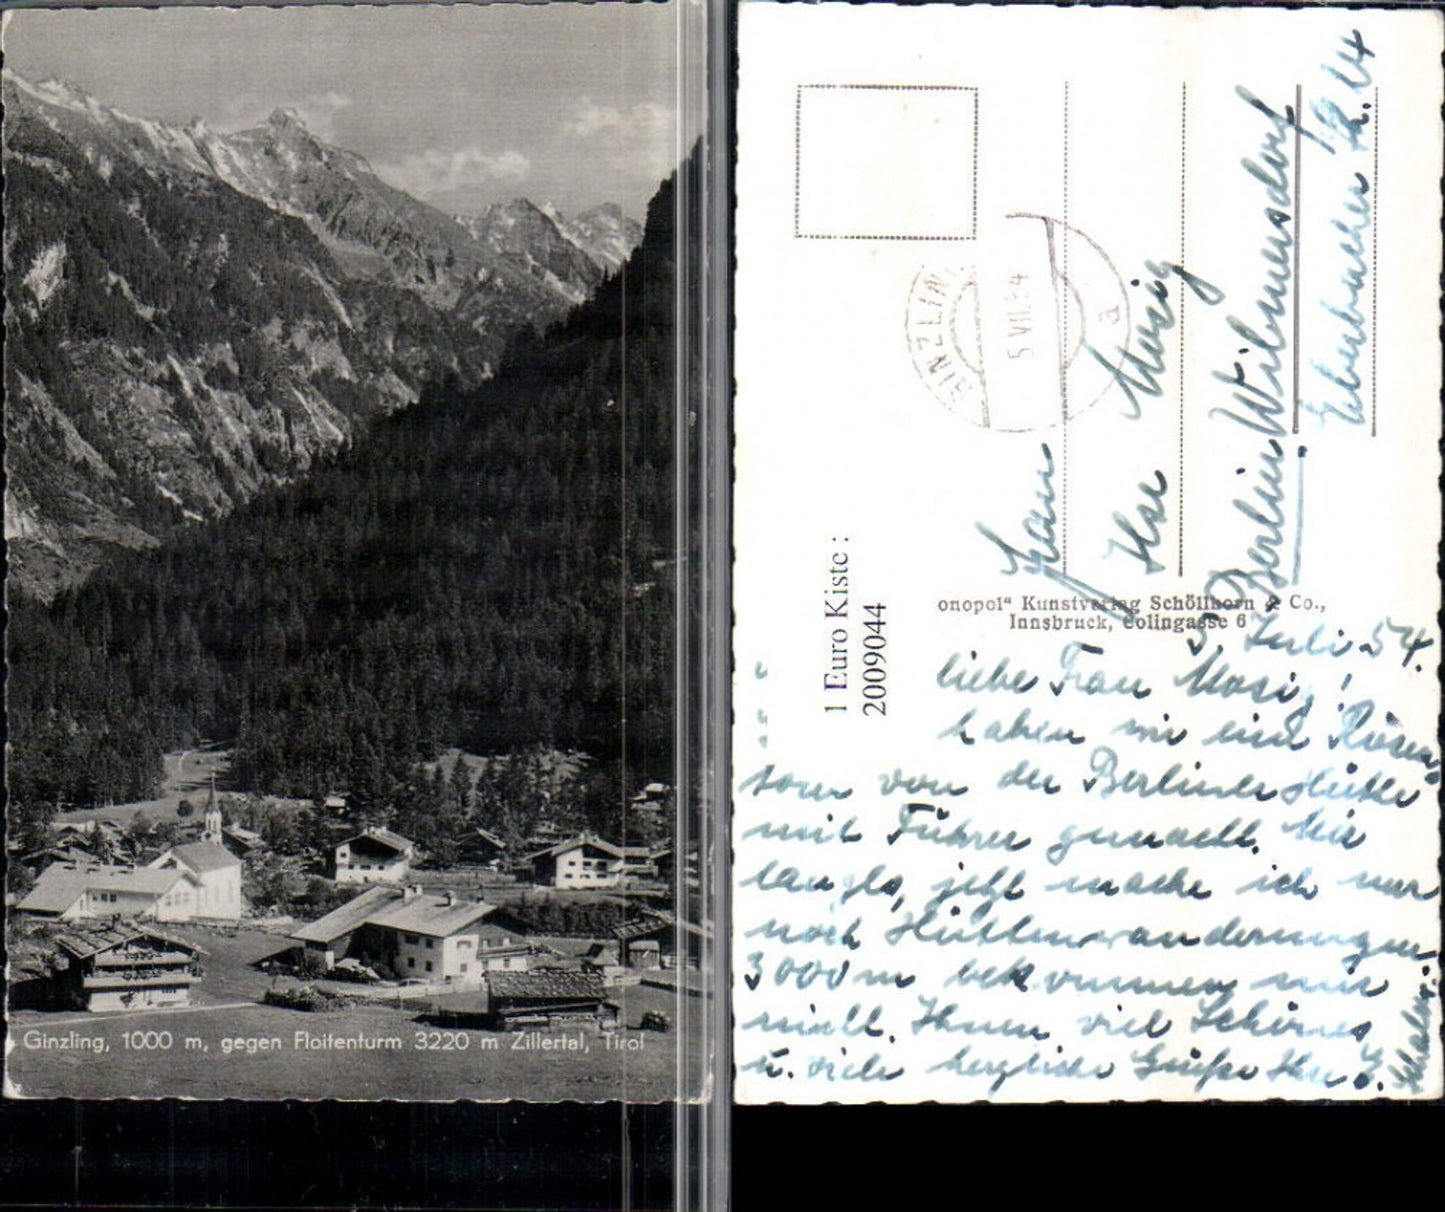 Ginzling, 1000 m, gegen Floitenturm 3220 m Zillertal, Tirol
GINZLIN
5.VII.54
a
Frau
Ilse Mosig
Berlin Wilmersdorf
1 Euro Kiste :
2009044
onopol“ Kunstverlag Schöllhorn & Co.,
Innsbruck, Colingasse 6
5. Juli 54.
Liebe Frau Mosig!
haben wir eine
von der Berliner Hütte
mit Führer gemacht. Mir
jetzt mache ich nur
noch Hüttenwanderungen
3000 m bekommen mir
nicht. Ihnen viel Schönes
u. viele herzliche Grüße Ihr